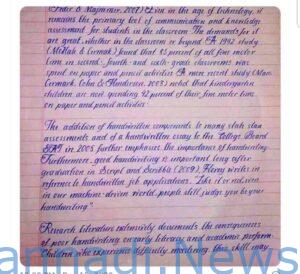 (Feder & Majnemer, 2007) Even in the age of technology, it
remains the primary tool of communication and knowledge
assessment for students in the classroom. The demands for it
are great, whether in the classroom or beyond. A 1992 study
(McHale & Cermak) found that 85 percent of all fine motor
time in second- fourth- and sixth-grade classrooms was
spent on paper and pencil activities. A more recent study (Marr,
Cermak, Cohn & Henderson, 2003) noted that kindergarten
children are now spending 42 percent of their fine motor time
on paper and pencil activities.
The addition of handwritten components to many state
assessments and of a handwritten essay to the College Board
SAT in 2005 further emphasize the importance of handwriting.
Furthermore, good handwriting is important long after
graduation. In Script and Scribble (2009), Florey writes in
reference to handwritten job applications, "Like it or not, even
in our machine-driven world, people still judge you by your
handwriting."
Research literature extensively documents the consequences
of poor handwriting on early literacy and academic perform
Children who experience difficulty mastering this skill may
.News